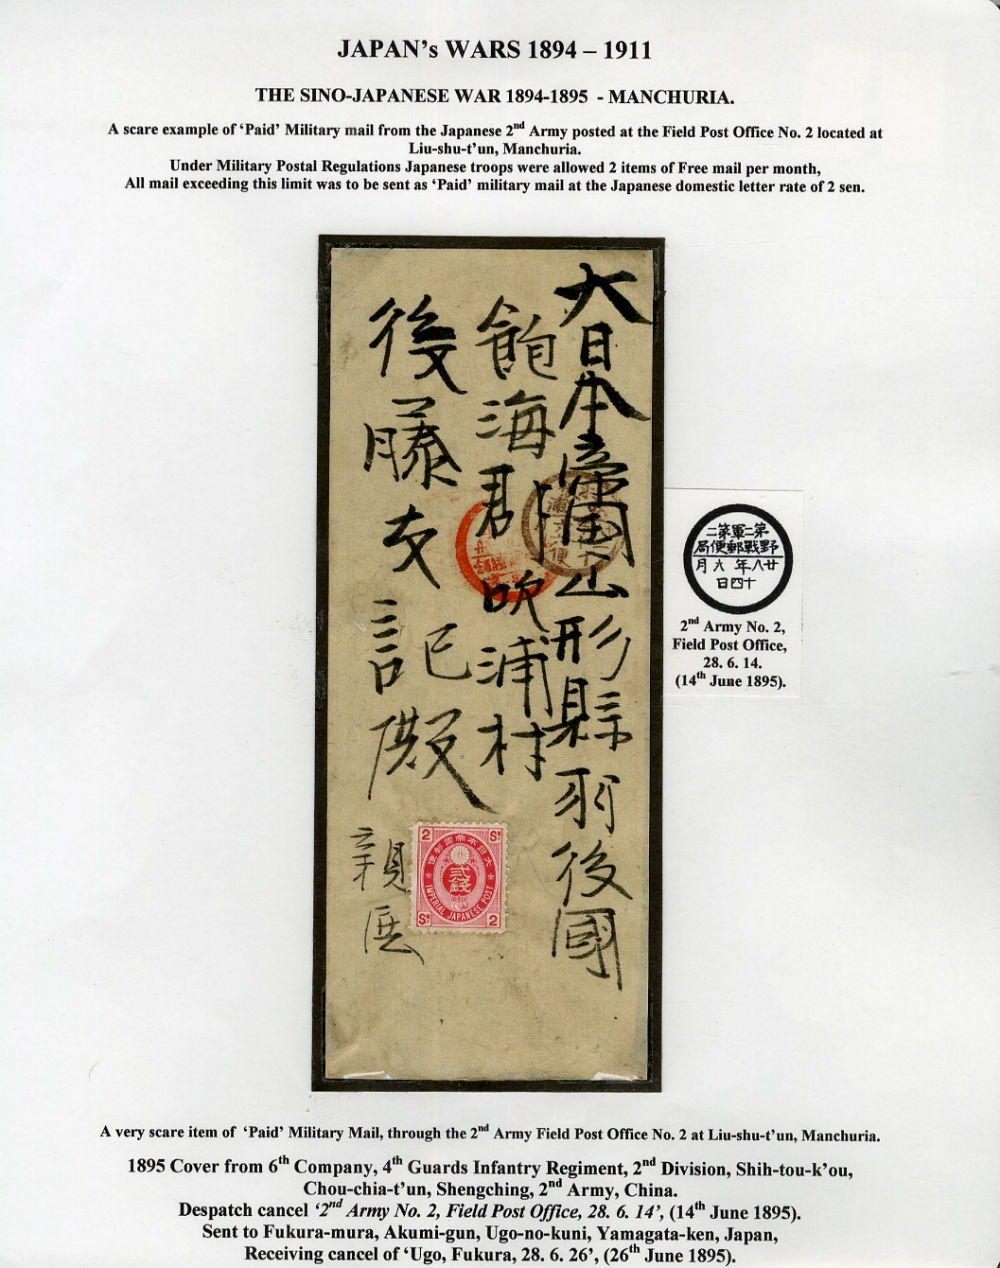 JAPAN's WARS 1894 – 1911
THE SINO-JAPANESE WAR 1894-1895 - MANCHURIA.
A scare example of 'Paid' Military mail from the Japanese 2nd Army posted at the Field Post Office No. 2 located at
Liu-shu-t'un, Manchuria.
Under Military Postal Regulations Japanese troops were allowed 2 items of Free mail per month,
All mail exceeding this limit was to be sent as 'Paid' military mail at the Japanese domestic letter rate of 2 sen.
大日本帝國山形縣羽後國
飽海郡吹浦村
後藤友記殿
親展
2 Sn
大日本帝國郵便
貳錢
IMPERIAL JAPANESE POST
Sn 2
第二軍第二
野戰郵便局
廿八年六月
十四日
2nd Army No. 2,
Field Post Office,
28. 6. 14.
(14th June 1895).
A very scare item of 'Paid' Military Mail, through the 2nd Army Field Post Office No. 2 at Liu-shu-t'un, Manchuria.
1895 Cover from 6th Company, 4th Guards Infantry Regiment, 2nd Division, Shih-tou-k'ou,
Chou-chia-t'un, Shengching, 2nd Army, China.
Despatch cancel '2nd Army No. 2, Field Post Office, 28. 6. 14', (14th June 1895).
Sent to Fukura-mura, Akumi-gun, Ugo-no-kuni, Yamagata-ken, Japan,
Receiving cancel of 'Ugo, Fukura, 28. 6. 26', (26th June 1895).